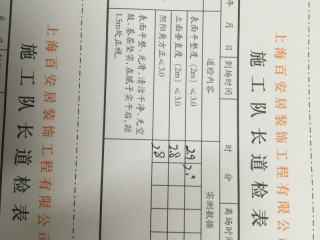 上海百安居装饰工程有限公司
施工队长道检表
年 月 日 到场时间 时 分 离场时间
道检内容 实测数据
表面平整度 (2m) ≤3.0 2.9 2.9
立面垂直度 (2m) ≤3.0 2.8
阴阳角方正≤3.0 2.8
表面平整、光滑、清洁干净、无空
鼓、基层坚实，在腻子实干后，距
1.5m处正视。
上海百安居装饰工程有限公司
施工队长道检表